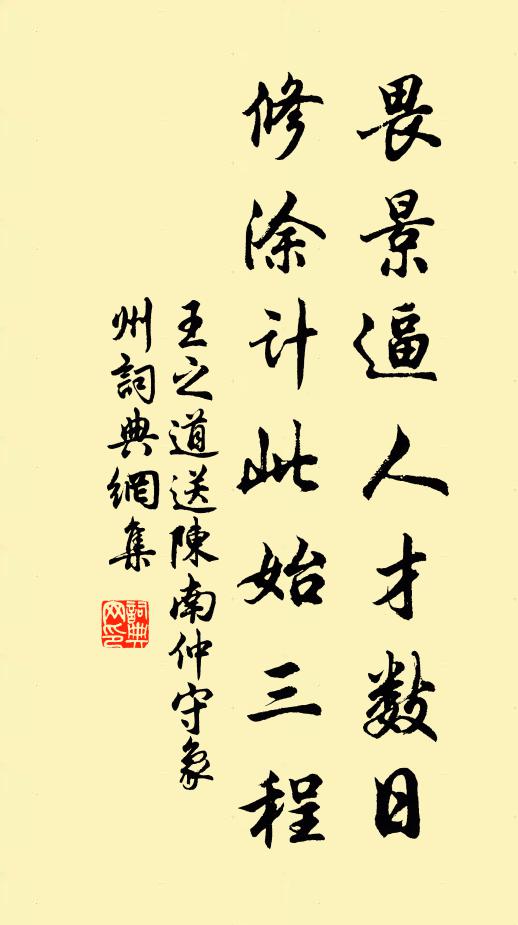 畏景逼人才数日
修涂计此始三程
王之道送陳南仲守象
州詞典網集
詞典
网印